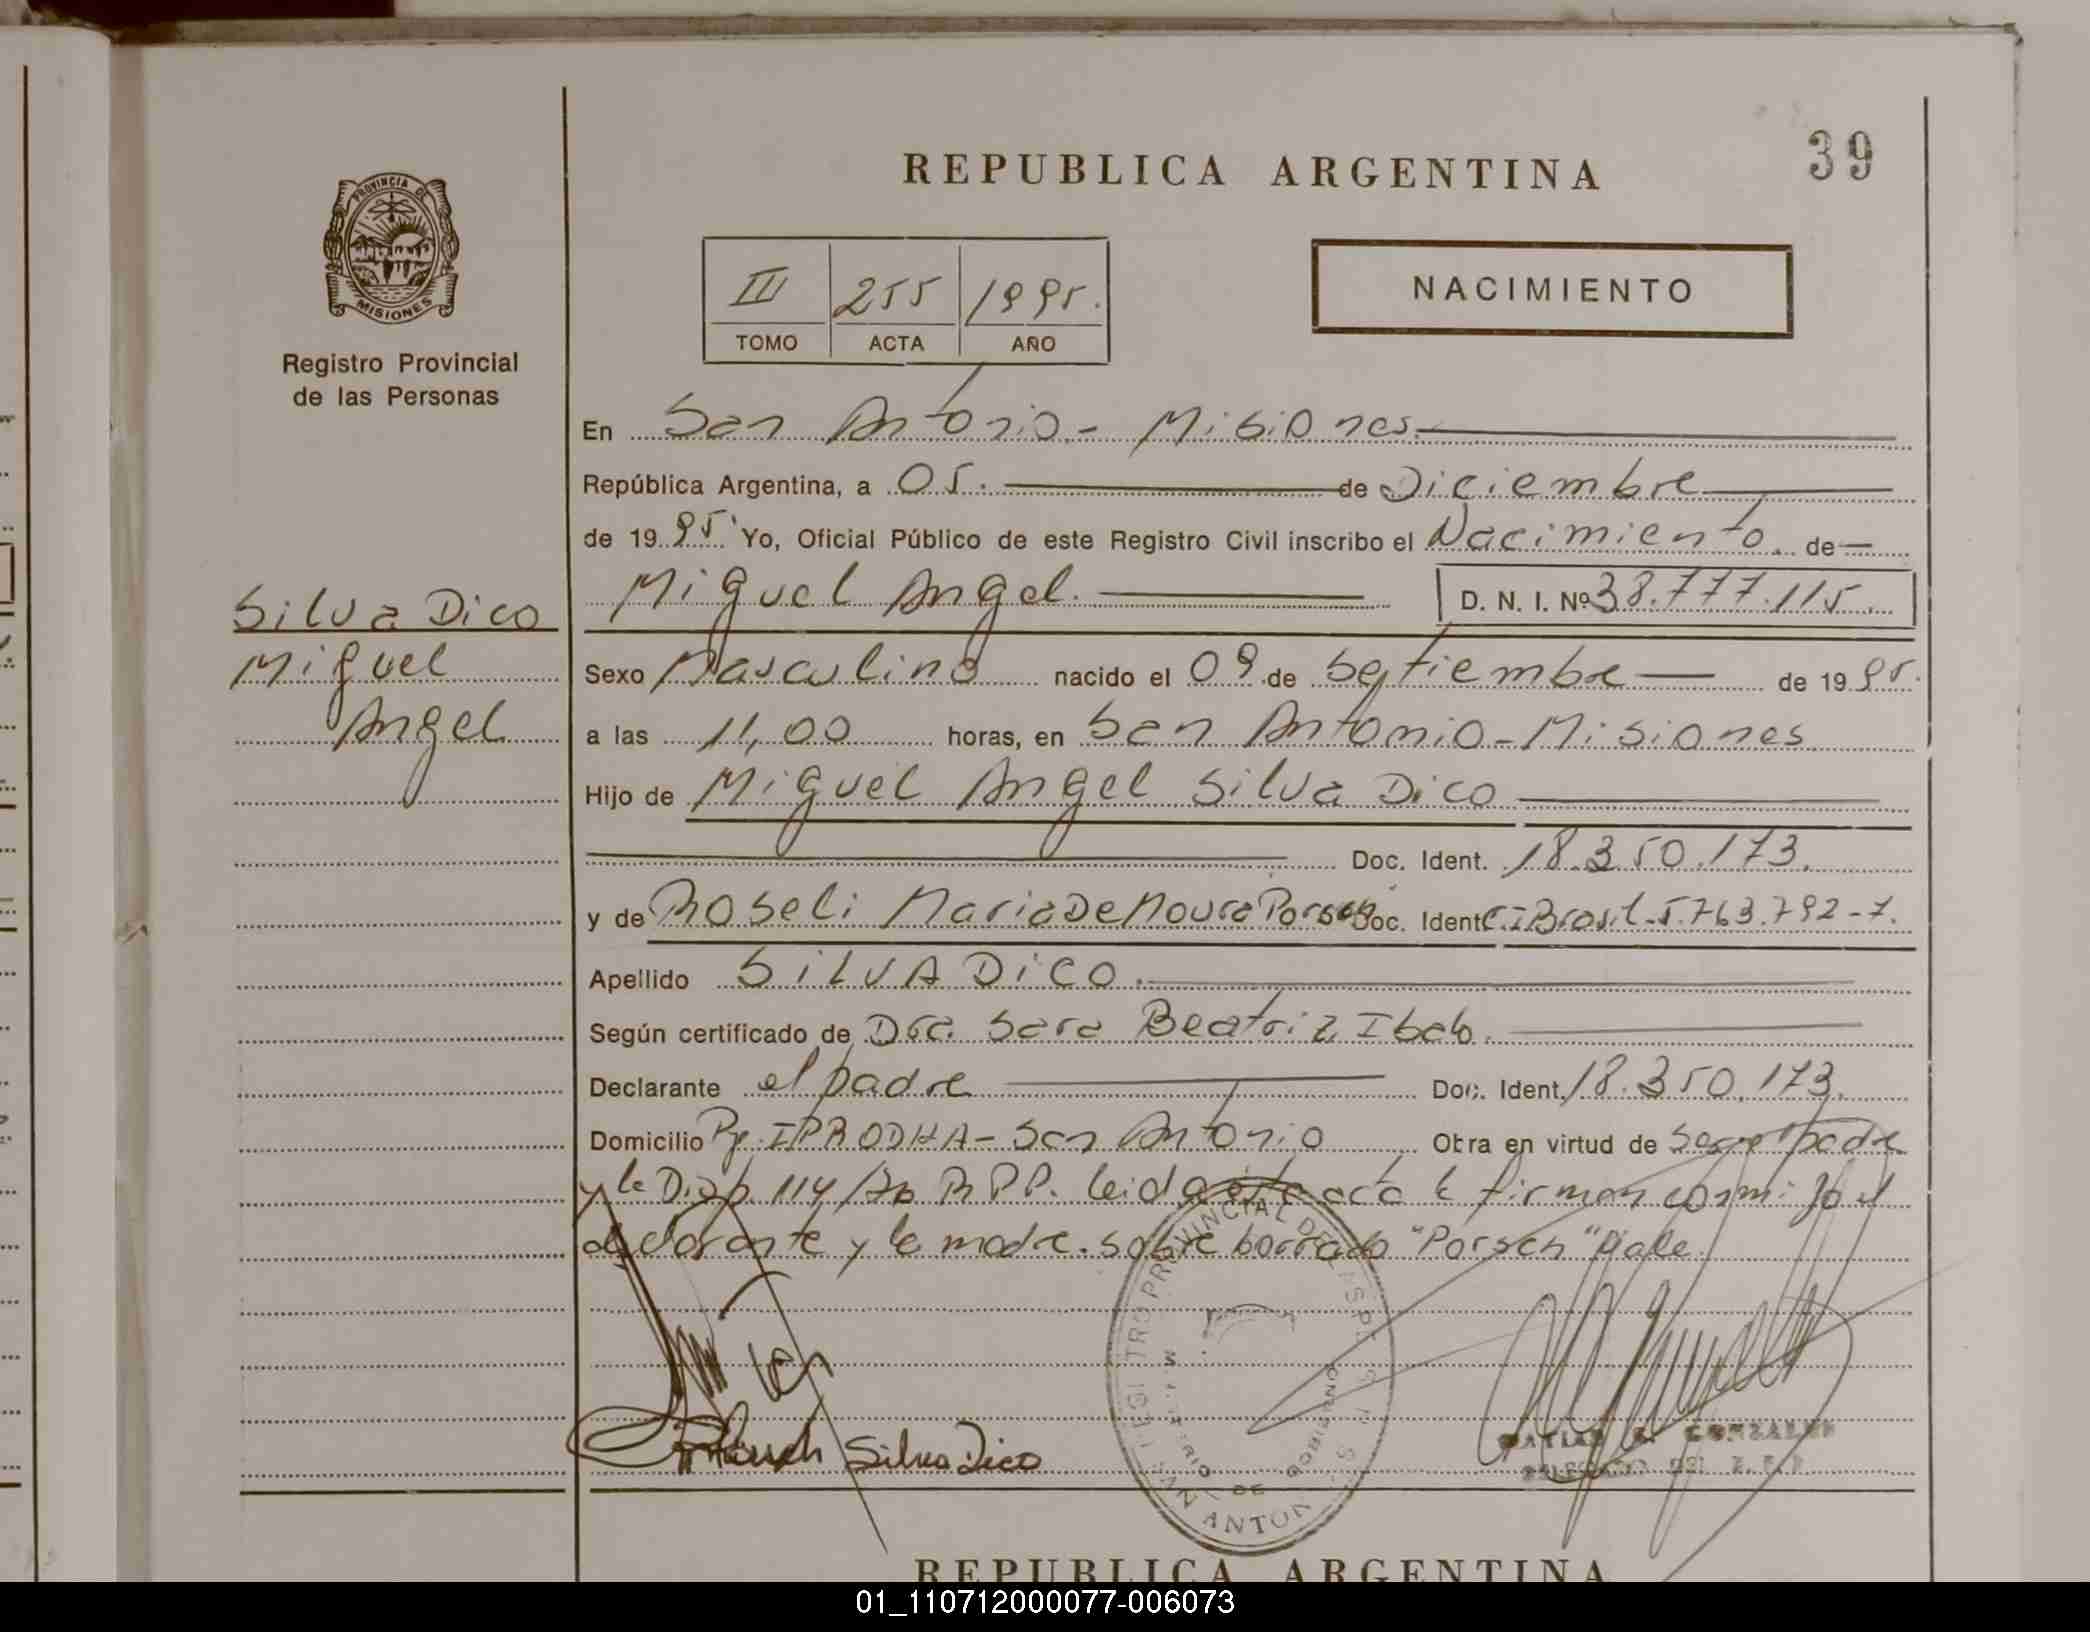 39
REPUBLICA ARGENTINA
PROVINCIA DE
MISIONES
Registro Provincial
de las Personas
III 255 1995.
TOMO ACTA AÑO
NACIMIENTO
En San Antonio - Misiones.
República Argentina, a 05. de Diciembre
de 1995 Yo, Oficial Público de este Registro Civil inscribo el Nacimiento de
Silva Dico
Miguel
Angel
Miguel Angel. D. N. I. Nº 38.777.115.
Sexo Masculino nacido el 09 de Septiembre de 1995.
a las 11,00 horas, en San Antonio - Misiones
Hijo de Miguel Angel Silva Dico
Doc. Ident. 18.350.173.
y de Roseli Maria De Moura Porsch Doc. Ident. C.I Brasil-5.763.792-7.
Apellido SILVA DICO.
Según certificado de Dra. Sara Beatriz
Declarante el padre Doc. Ident. 18.350.173.
Domicilio IPRODHA - San Antonio Obra en virtud de ser el padre
y la Disp 114 R.P.P. leida esta acta la firman conmigo el
declarante y la madre. sobre borrado "Porsch" Vale.
Silva Dico
REGISTRO PROVINCIAL DE
MINISTERIO DE GOBIERNO
SAN ANTONIO
GONZALEZ
REPUBLICA ARGENTINA
01_110712000077-006073